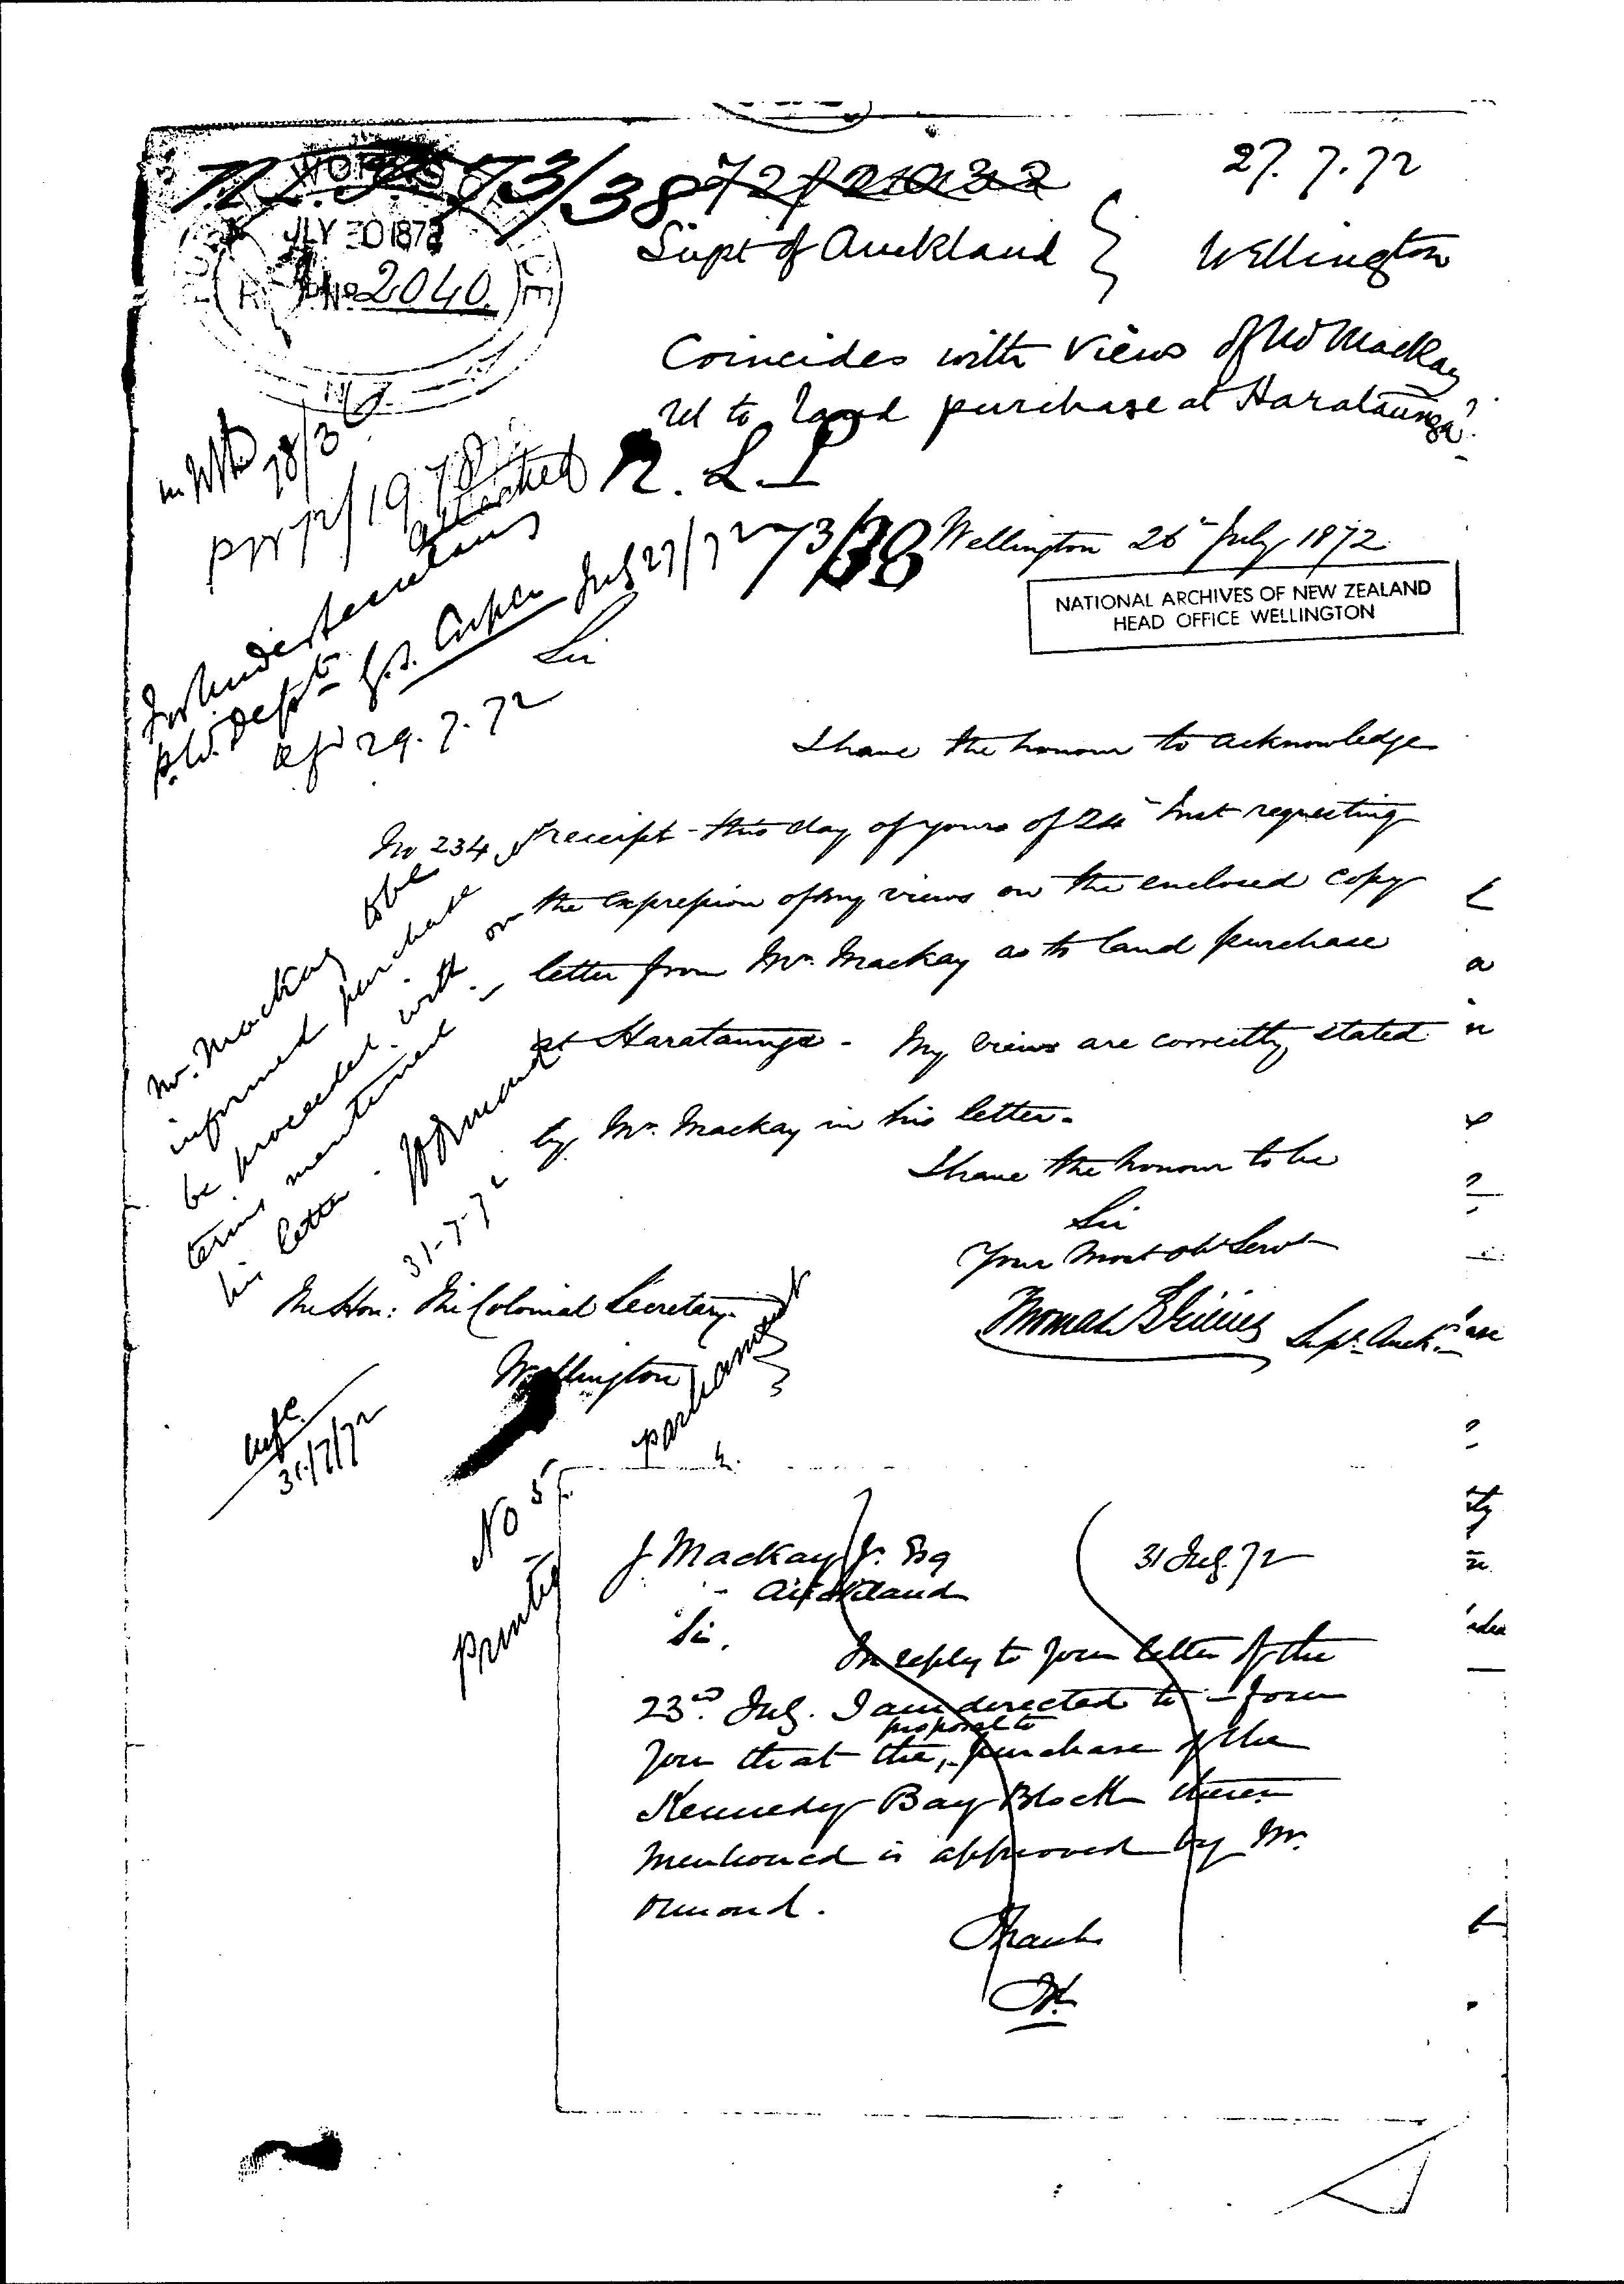 N.L.P. 73/38
27.7.72
Supt of Auckland } Wellington
JLY 30 1872
No 2040.
Coincides with views of Mr Mackay
rel to land purchase at Harataunga.
N. L. P
73/38
PW 72/1978
attached
Wellington 26th July 1872
NATIONAL ARCHIVES OF NEW ZEALAND
HEAD OFFICE WELLINGTON
For Under Secretary
P.W. Dept G.S. Cooper July 27/72
29.7.72
Sir
I have the honour to acknowledge
No 234 receipt this day of yours of 24th Inst requesting
the expression of my views on the enclosed copy
letter from Mr. Mackay as to land purchase
at Harataunga - My views are correctly stated
by Mr. Mackay in his letter.
I have the honour to be
Sir
Your most obt Servt
Supt. Auck.
The Hon: The Colonial Secretary
Wellington
Mr. Mackay to be
informed purchase to
be proceeded with on
terms mentioned in
his letter. JDOrmond
31-7-72
31/7/72
parchment
No 5
Printed
J Mackay Jr. Esq
Auckland
31 July 72
Sir,
In reply to your letter of the
23rd July. I am directed to inform
you that the proposal to purchase of the
Kennedy Bay Block therein
mentioned is approved by Mr.
Ormond.